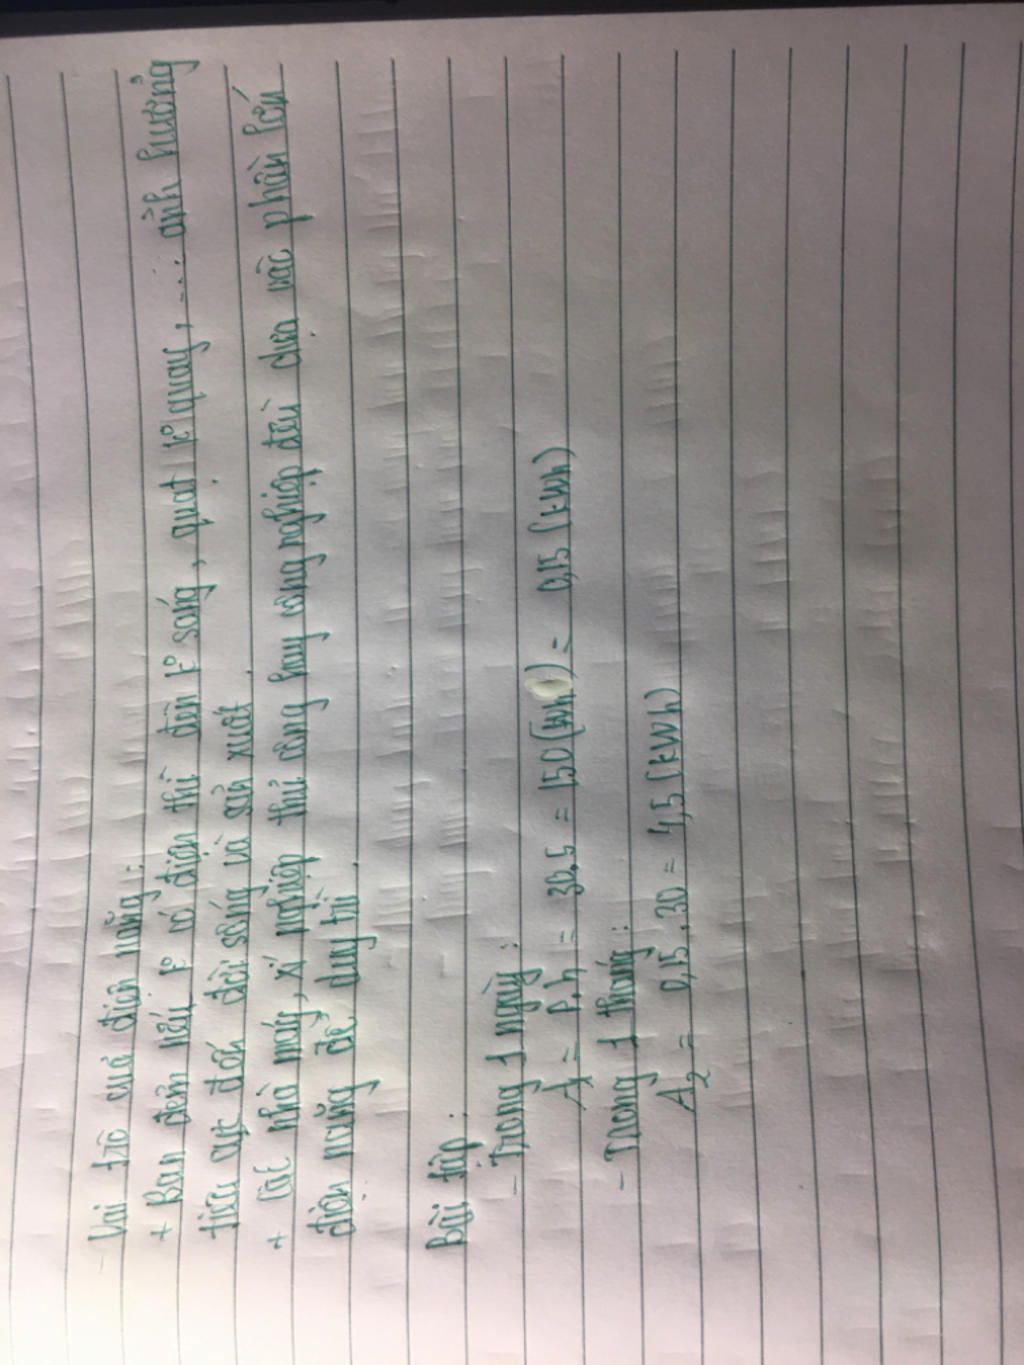 - Vai trò của điện năng:
+ Ban đêm nếu ko có điện thì đèn ko sáng, quạt ko quay, ... ảnh hưởng
tiêu cực đến đời sống và sản xuất.
+ Các nhà máy, xí nghiệp thủ công hay công nghiệp đều dựa vào phần lớn
điện năng để duy trì.
Bài tập:
- Trong 1 ngày:
A1 = P.h = 30.5 = 150 (Wh) = 0,15 (kWh)
- Trong 1 tháng:
A2 = 0,15.30 = 4,5 (kWh)